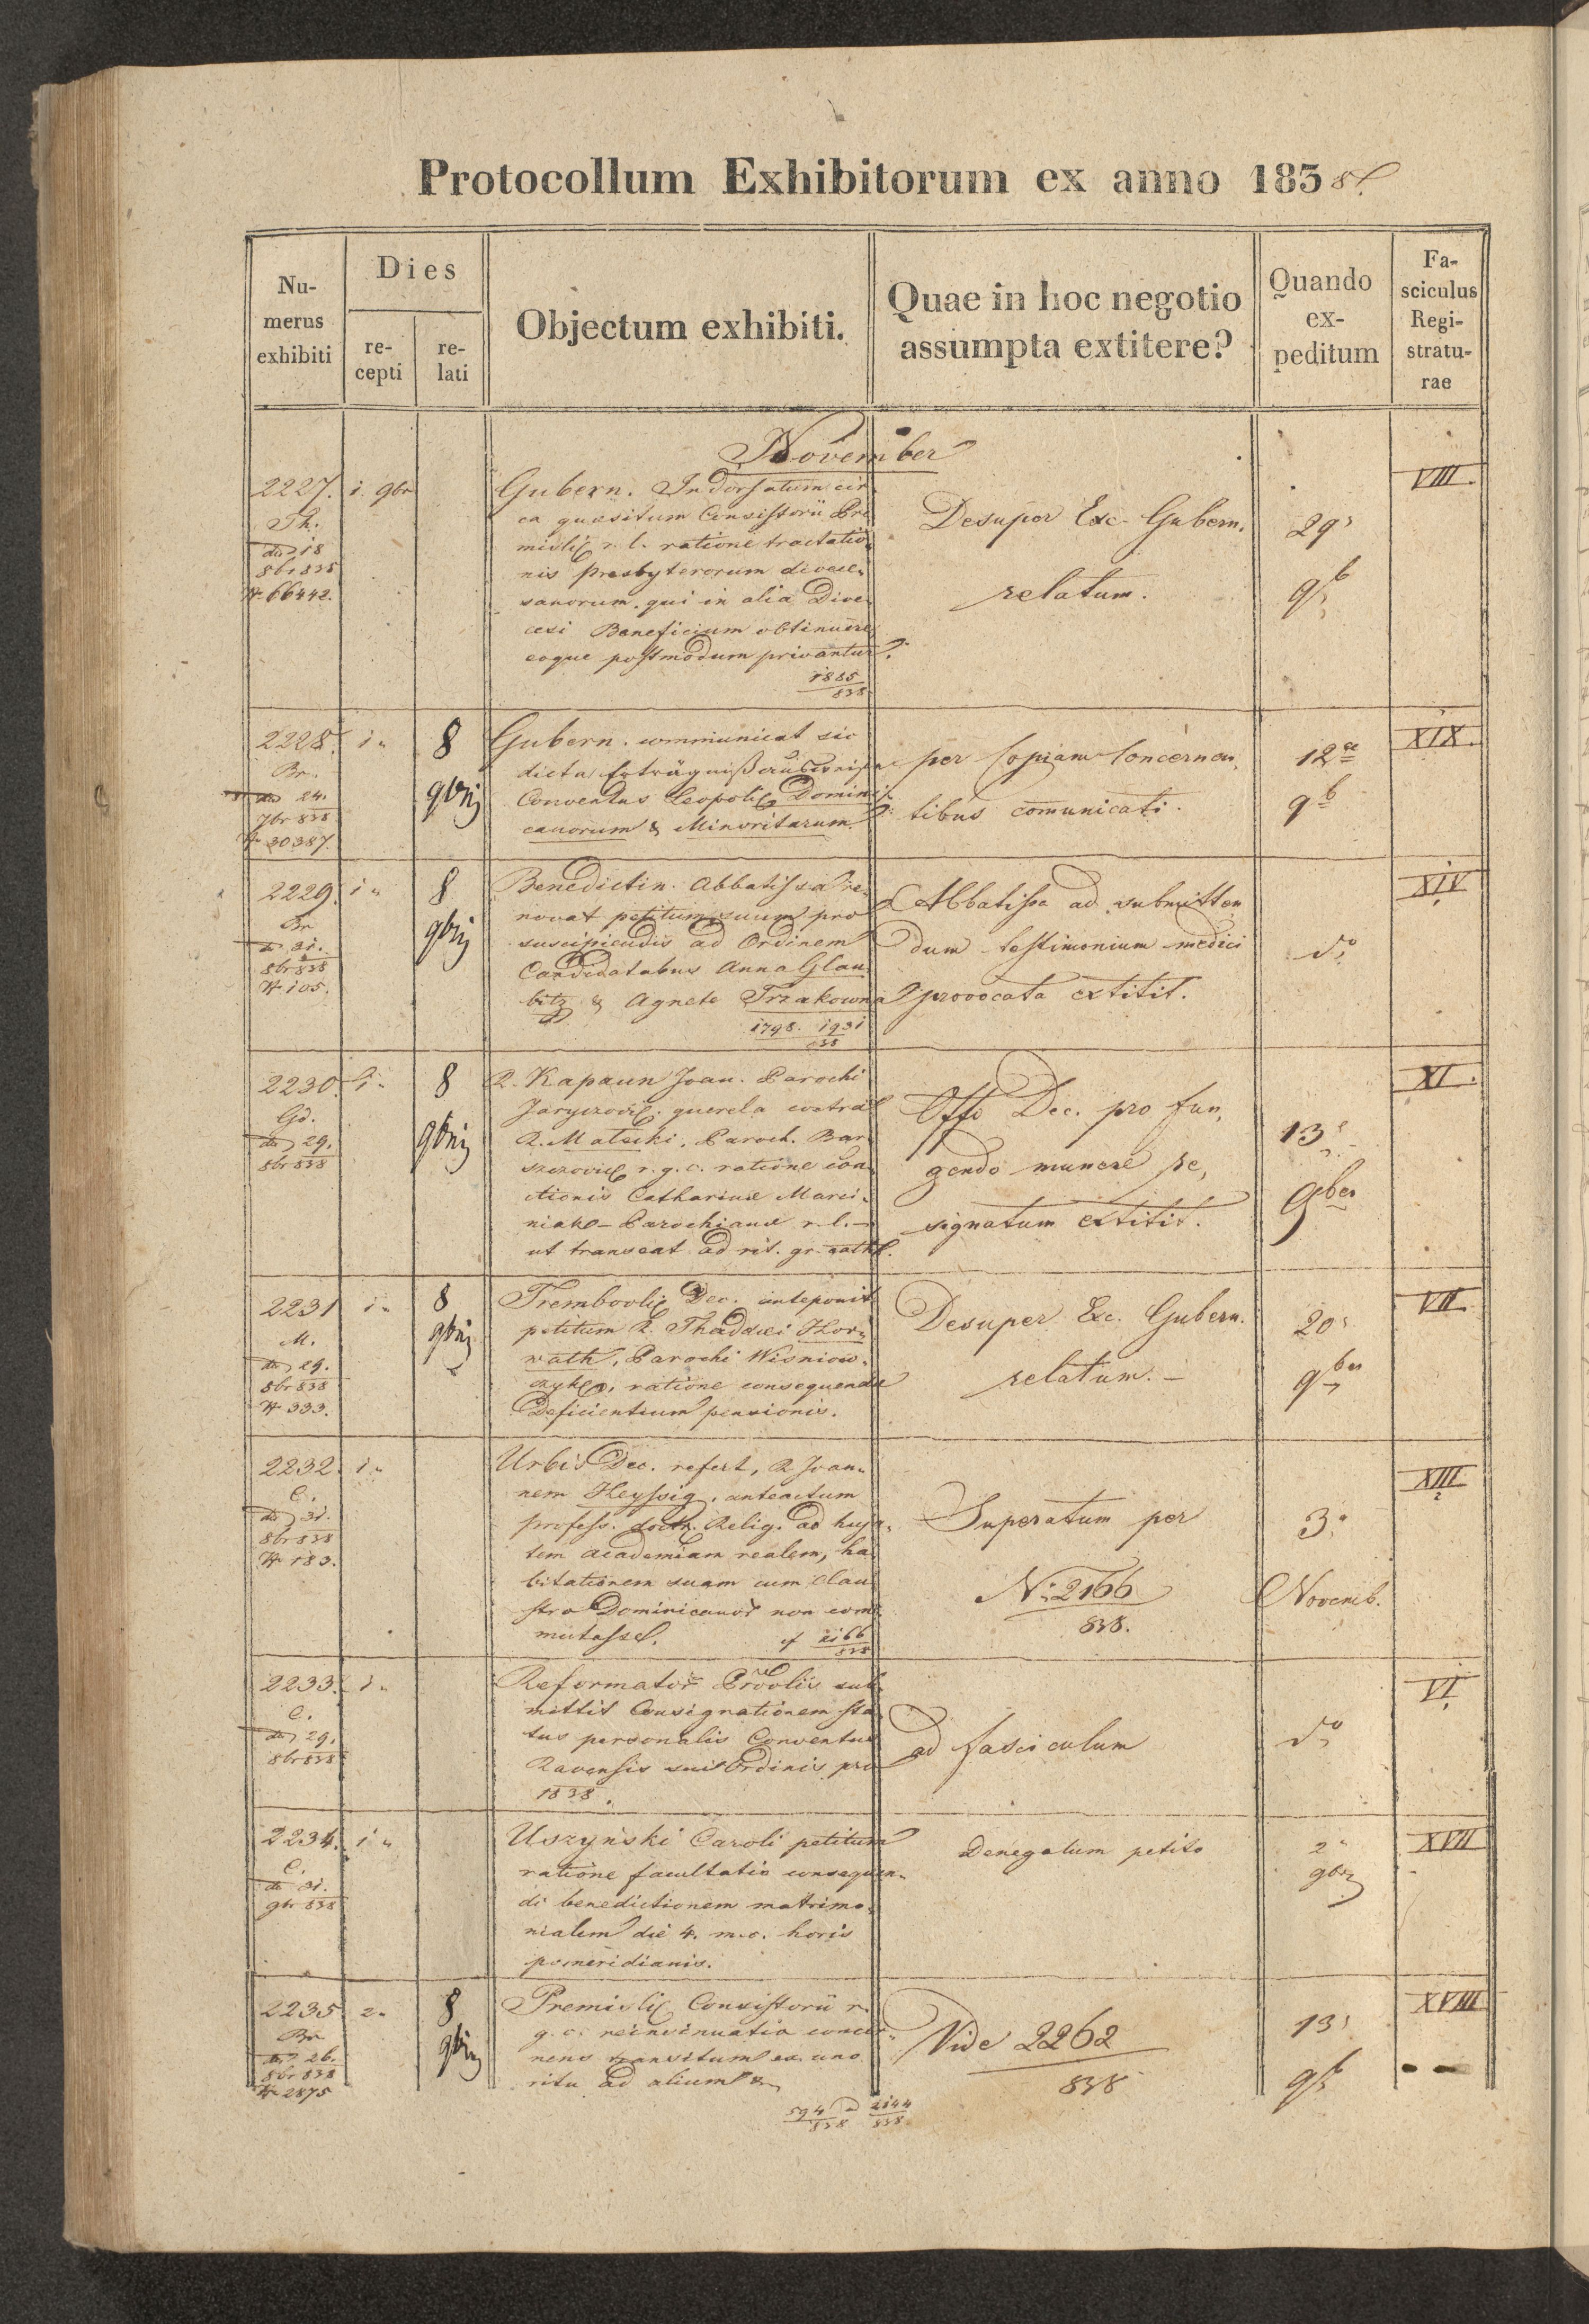 Protocollum Exhibitorum ex anno 1838.
Nu-
merus
exhibiti
Dies
re-
cepti
re-
lati
Objectum exhibiti.
Quae in hoc negotio
assumpta extitere?
Quando
ex-
peditum
Fa-
sciculus
Regi-
stratu-
rae
November
2227. 1. 9br
Th.
18
8br 838
N 66442.
Gubern. Indorsatum cir
ca quaesitum Consistorii Pre
misli r. l. ratione tractatio
nis presbyterorum dioece
sanorum, qui in alia Dioe
cesi Beneficium obtinuere
eoque postmodum privantur.
1885
838
Desuper Exc. Gubern.
relatum.
29
9b
VIII.
2228. 1 "
Br.
24.
7br 838
N 30387.
8
9bris
Gubern. communicat sic
dicta Erträgniß
Conventus Leopoli Domini
canorum & Minoritarum.
per Copiam Concernen
tibus comunicati.
12
9b
XIX.
2229. 1 "
Br
31.
8br 838
N 105.
8
9bris
Benedictin. Abbatissa re
novat petitum suum pro
suscipiendis ad Ordinem
Candidatabus Anna Glau
bitz & Agnete Trzakowna
1798. 1931
838
Abbatissa ad submitten
dum testimonium medici
provocata extitit.
do
XIV
2230. 1 "
Gd.
29.
8br 838
8
9bris
R. Kapaun Joan. Parochi
Jaryczovi querela contra
R. Matecki, Paroch. Bar
szczovic r. g. c. ratione
Catharinae Marci
niak - Parochianae r. l. -
ut transeat ad rit. gr. cath.
Offo Dec. pro fun
gendo munere re
signatum extitit.
13
9ber
XI.
2231 1 "
M.
29.
8br 838
N 333.
8
9bris
Trembovli Dec. anteponit
petitum R. Thaddaei Hor
wath, Parochi Wisniow
czyk, ratione consequendae
Deficientium pensionis.
Desuper Exc. Gubern.
relatum. -
20
9ber
VII.
2232. 1 "
C.
31.
8br 838
N 183.
Urbis Dec. refert, R Joan
nem Heyssig, anteactum
profess. doctr. Relig. ad huja
tem academiam realem, ha
bitationem suam cum Clau
stro Dominicanor non com
mutasse.
cf 2166
838
Superatum per
N. 2166
838.
3.
Novemb.
XIII
2233. 1 "
C.
29.
8br 838
Reformator Provlis sub
mittit Consignationem sta
tus personalis Conventus
Ravensis sui Ordinis pro
1838.
ad fasciculum
do
VI
2234. 1 "
C.
31.
9br 838
Uszyński Caroli petitum
ratione facultatis consequen
di benedictionem matrimo
nialem die 4. m. c. horis
pomeridianis.
Denegatum petito
2
9bris
XVII
2235. 2 "
Br
26.
8br 838
N 2875
8
9bris
Premisli Consistorii r.
g. c. reinsinuatio concer
nens transitum ex uno
ritu ad alium
594
838
2144
838
Vide 2262
838
13
9b
XVIII